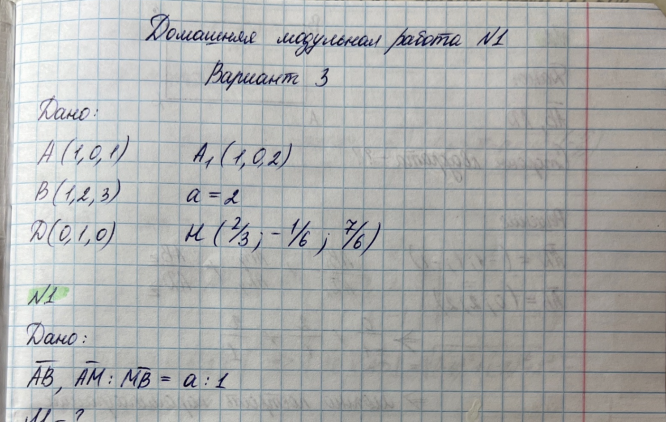 Домашняя модульная работа №1
Вариант 3
Дано:
A (1,0,1) A₁ (1,0,2)
B (1,2,3) a = 2
D (0,1,0) H (2/3; -1/6; 7/6)
№1
Дано:
AB, AM : MB = a : 1
M - ?